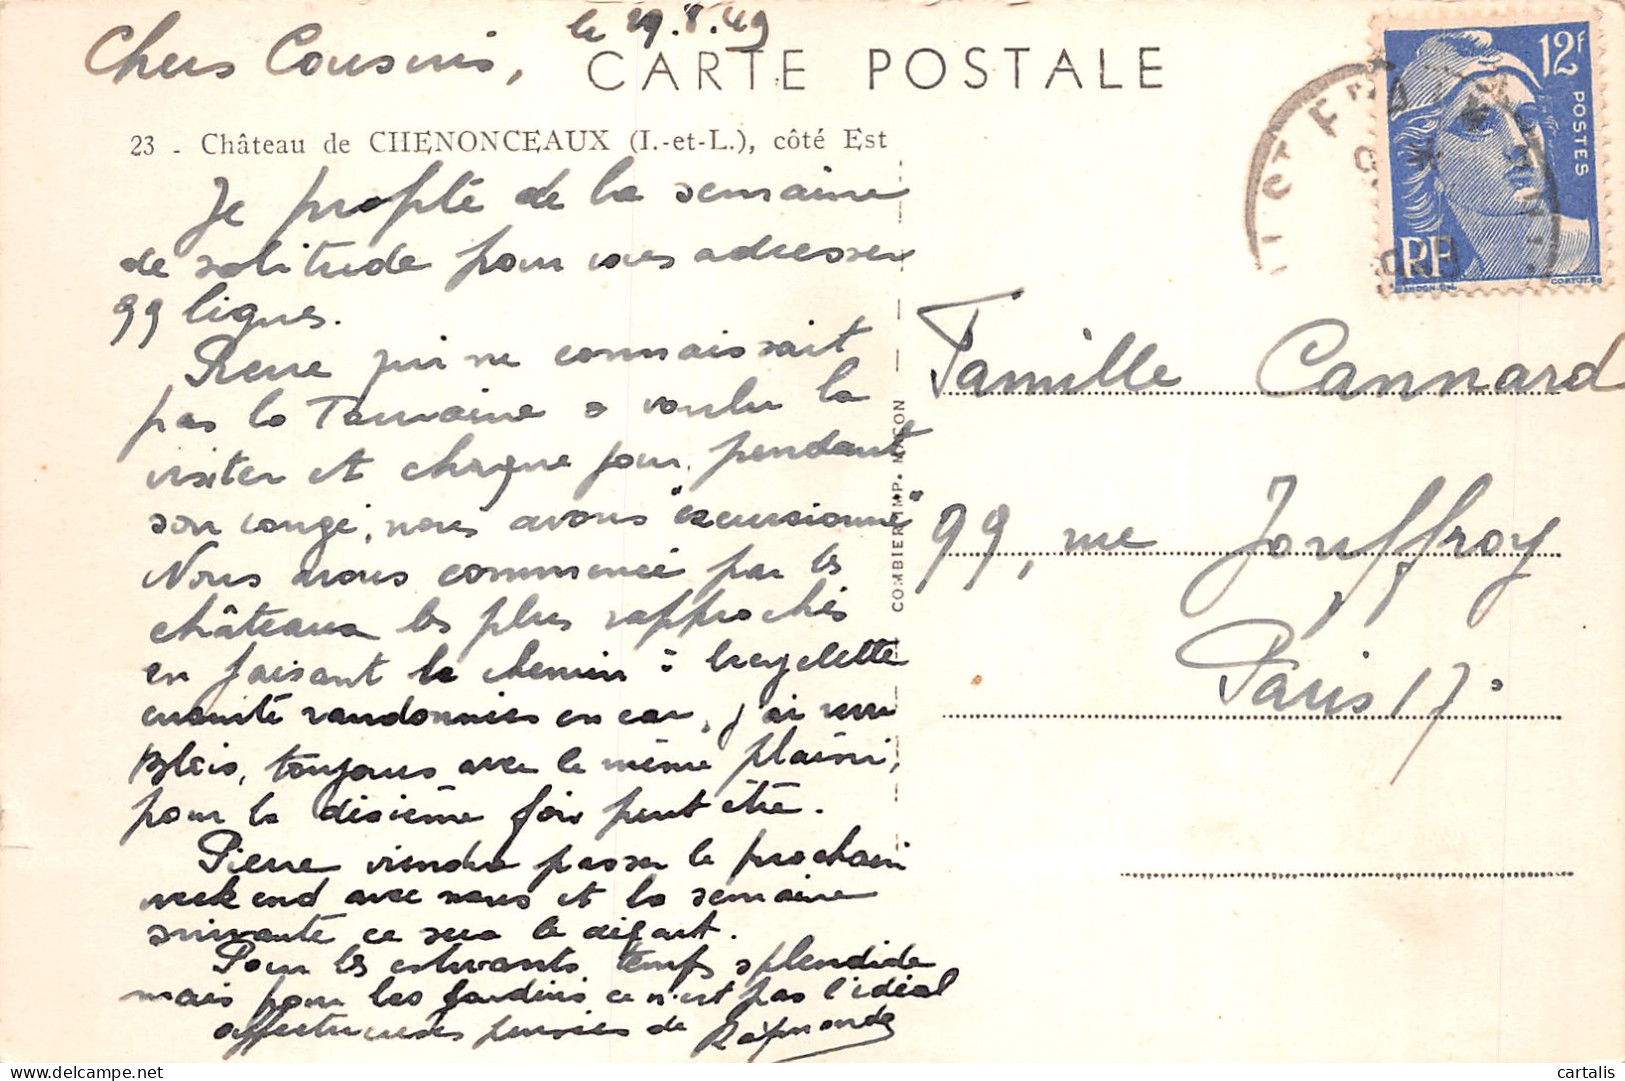 le 29.8.49
Chers Cousins,
CARTE POSTALE
23 - Château de CHENONCEAUX (I.-et-L.), côté Est
Je profite de la semaine
de solitude pour vous adresser
99 lignes.
Pierre qui ne connaissait
pas la Touraine a voulu la
visiter et chaque jour, pendant
son congé, nous avons "excursionné"
Nous avons commencé par les
châteaux les plus rapprochés
en faisant le chemin à bicyclette
ensuite randonnées en car, j'ai revu
Blois, toujours avec le même plaisir,
pour la dixième fois peut être.
Pierre viendra passer le prochain
week end avec nous et la semaine
suivante ce sera le départ.
Pour les estivants temps splendide
mais pour les jardins ce n'est pas l'idéal
affectueuses pensées de Raymonde
COMBIER IMP. MACON
12F
POSTES
RF
GANDON.DEL
CORTOT.SC
Famille Cannard
99, rue Jouffroy
Paris 17°
cartalis